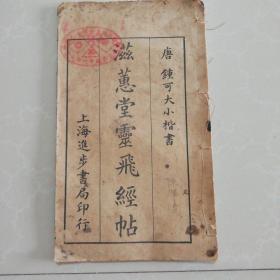 唐 鍾可大小楷書
滋蕙堂靈飛經帖
上海進步書局印行